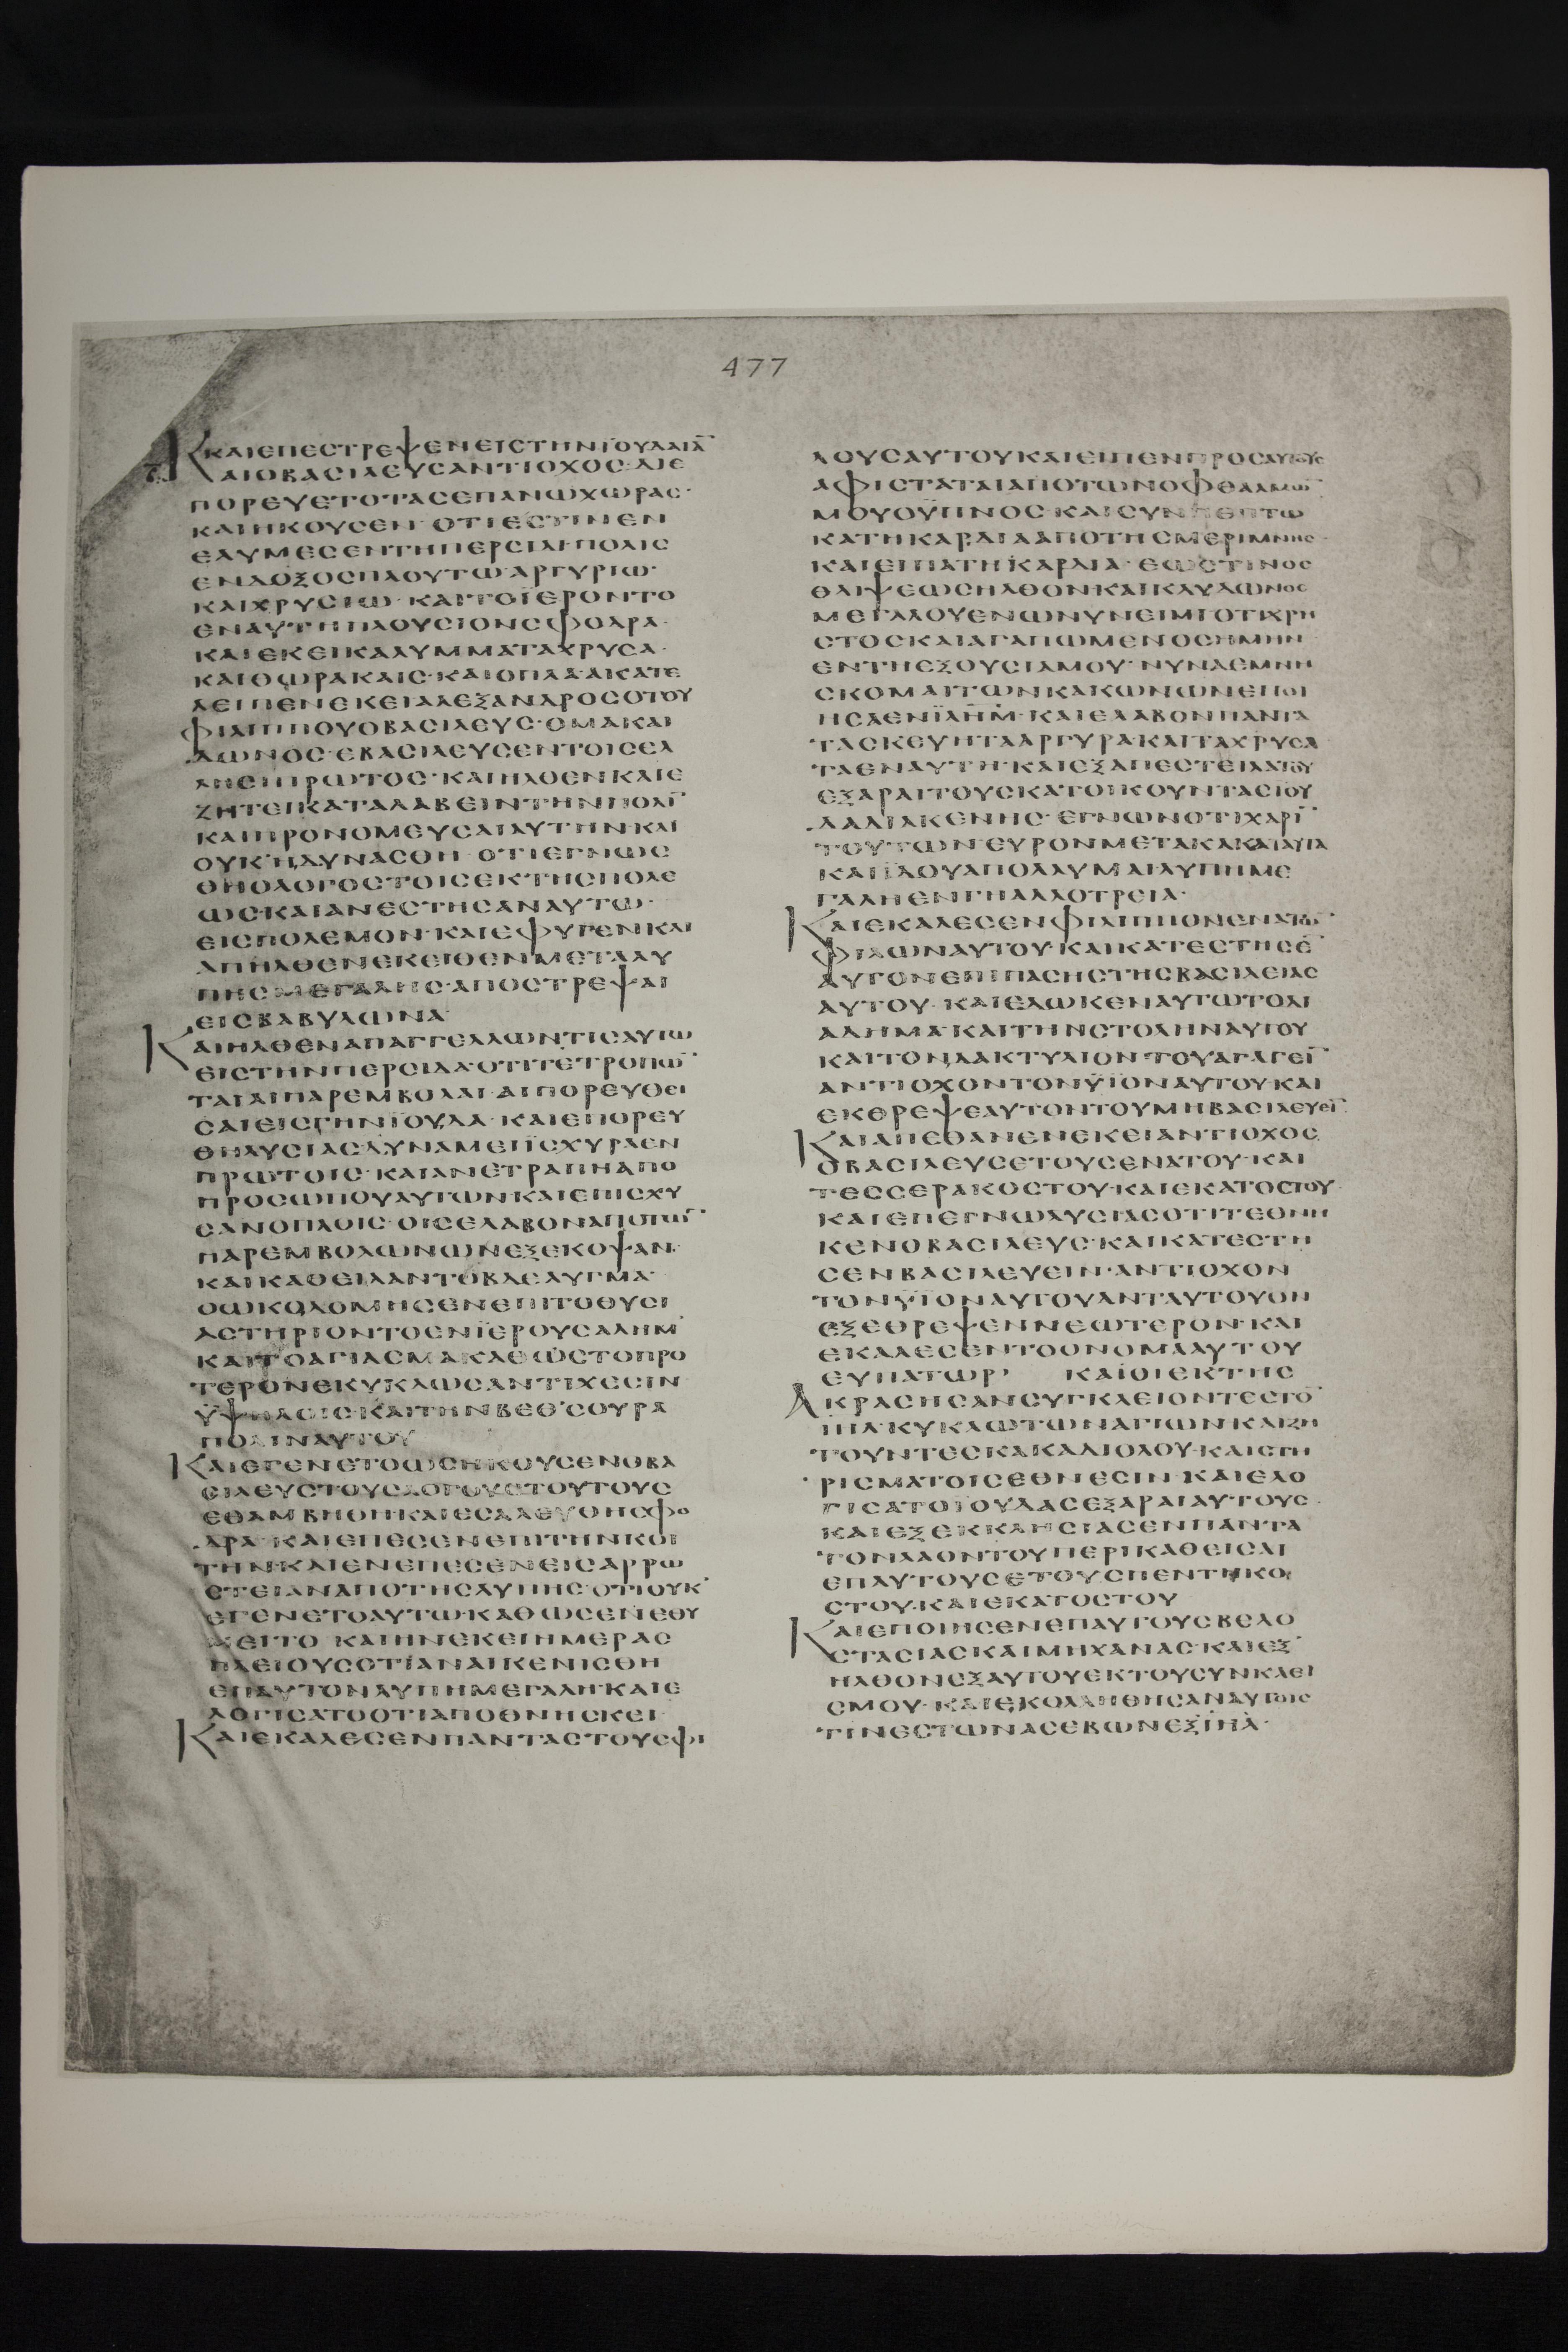 477
ΚΑΙΕΠΕCΤΡΕΨΕΝΕΙCΤΗΝΪΟΥΔΑΙΑ̅
ΚΑΙΟΒΑCΙΛΕΥCΑΝΤΙΟΧΟC·ΔΙΕ
ΠΟΡΕΥΕΤΟΤΑCΕΠΑΝΩΧΩΡΑC·
ΚΑΙΗΚΟΥCΕΝ·ΟΤΙΕCΤΙΝΕΝ
ΕΛΥΜΕCΕΝΤΗΠΕΡCΙΔΙ·ΠΟΛΙC
ΕΝΔΟΞΟCΠΛΟΥΤΩ·ΑΡΓΥΡΙΩ·
ΚΑΙΧΡΥCΙΩ·ΚΑΙΤΟΪΕΡΟΝΤΟ
ΕΝΑΥΤΗΠΛΟΥCΙΟΝCΦΟΔΡΑ·
ΚΑΙΕΚΕΙΚΑΛΥΜΜΑΤΑΧΡΥCΑ·
ΚΑΙΘΩΡΑΚΑΙC·ΚΑΙΟΠΛΑ·ΑΚΑΤΕ
ΛΕΙΠΕΝΕΚΕΙΑΛΕΞΑΝΔΡΟCΟΤΟΥ
ΦΙΛΙΠΠΟΥΟΒΑCΙΛΕΥC·ΟΜΑΚΑΙ
ΔΩΝΟC·ΕΒΑCΙΛΕΥCΕΝΤΟΙCΕΛ
ΛΗCΙΠΡΩΤΟC·ΚΑΙΗΛΘΕΝΚΑΙΕ
ΖΗΤΕΙΚΑΤΑΛΑΒΕΙΝΤΗΝΠΟΛΙ̅
ΚΑΙΠΡΟΝΟΜΕΥCΑΙΑΥΤΗΝΚΑΙ
ΟΥΚΗΔΥΝΑCΘΗ·ΟΤΙΕΓΝΩC
ΘΗΟΛΟΓΟCΤΟΙCΕΚΤΗCΠΟΛΕ
ΩC·ΚΑΙΑΝΕCΤΗCΑΝΑΥΤΩ·
ΕΙCΠΟΛΕΜΟΝ·ΚΑΙΕΦΥΓΕΝΚΑΙ
ΑΠΗΛΘΕΝΕΚΕΙΘΕΝΜΕΤΑΛΥ
ΠΗCΜΕΓΑΛΗC·ΑΠΟCΤΡΕΨΑΙ
ΕΙCΒΑΒΥΛΩΝΑ·
ΚΑΙΗΛΘΕΝΑΠΑΓΓΕΛΛΩΝΤΙCΑΥΤΩ
ΕΙCΤΗΝΠΕΡCΙΔΑ·ΟΤΙΤΕΤΡΟΠΩ̅
ΤΑΙΑΙΠΑΡΕΜΒΟΛΑΙ·ΑΙΠΟΡΕΥΘΕΙ
CΑΙΕΙCΓΗΝΪΟΥΔΑ·ΚΑΙΕΠΟΡΕΥ
ΘΗΛΥCΙΑCΔΥΝΑΜΕΙΪCΧΥΡΑΕΝ
ΠΡΩΤΟΙC·ΚΑΙΑΝΕΤΡΑΠΗΑΠΟ
ΠΡΟCΩΠΟΥΑΥΤΩΝ·ΚΑΙΕΠΙCΧΥ
CΑΝΟΠΛΟΙC·ΟΙCΕΛΑΒΟΝΑΠΟΤΩ̅
ΠΑΡΕΜΒΟΛΩΝΩΝΕΞΕΚΟΨΑΝ·
ΚΑΙΚΑΘΕΙΛΑΝΤΟΒΔΕΛΥΓΜΑ·
ΟΩΚΟΔΟΜΗCΕΝΕΠΙΤΟΘΥCΙ
ΑCΤΗΡΙΟΝΤΟΕΝΪΕΡΟΥCΑΛΗΜ·
ΚΑΙΤΟΑΓΙΑCΜΑΚΑΘΩCΤΟΠΡΟ
ΤΕΡΟΝΕΚΥΚΛΩCΑΝΤΙΧΕCΙΝ
ΫΨΗΛΟΙC·ΚΑΙΤΗΝΒΕΘCΟΥΡΑ
ΠΟΛΙΝΑΥΤΟΥ
ΚΑΙΕΓΕΝΕΤΟΩCΗΚΟΥCΕΝΟΒΑ
CΙΛΕΥCΤΟΥCΛΟΓΟΥCΤΟΥΤΟΥC
ΕΘΑΜΒΗΘΗ·ΚΑΙΕCΑΛΕΥΘΗCΦΟ
ΔΡΑ·ΚΑΙΕΠΕCΕΝΕΠΙΤΗΝΚΟΙ
ΤΗΝ·ΚΑΙΕΝΕΠΕCΕΝΕΙCΑΡΡΩ
CΤΕΙΑΝΑΠΟΤΗCΛΥΠΗC·ΟΤΙΟΥΚ
ΕΓΕΝΕΤΟΑΥΤΩ·ΚΑΘΩCΕΝΕΘΥ
ΜΕΙΤΟ·ΚΑΙΗΝΕΚΕΙΗΜΕΡΑC
ΠΛΕΙΟΥCΟΤΙΑΝΑΙΚΕΝΙCΘΗ
ΕΠΑΥΤΟΝΛΥΠΗΜΕΓΑΛΗ·ΚΑΙΕ
ΛΟΓΙCΑΤΟΟΤΙΑΠΟΘΝΗCΚΕΙ·
ΚΑΙΕΚΑΛΕCΕΝΠΑΝΤΑCΤΟΥCΦΙ
ΛΟΥCΑΥΤΟΥΚΑΙΕΙΠΕΝΠΡΟCΑΥΤΟΥC
ΑΦΙCΤΑΤΑΙΑΠΟΤΩΝΟΦΘΑΛΜΩ̅
ΜΟΥΟΫΠΝΟC·ΚΑΙCΥΝΠΕΠΤΩ
ΚΑΤΗΚΑΡΔΙΑΑΠΟΤΗCΜΕΡΙΜΝΗC·
ΚΑΙΕΙΠΑΤΗΚΑΡΔΙΑ·ΕΩCΤΙΝΟC
ΘΛΙΨΕΩCΗΛΘΟΝΚΑΙΚΛΥΔΩΝΟC
ΜΕΓΑΛΟΥΕΝΩΝΥΝΕΙΜΙΟΤΙΧΡΗ
CΤΟCΚΑΙΑΓΑΠΩΜΕΝΟCΗΜΗΝ
ΕΝΤΗΕΞΟΥCΙΑΜΟΥ·ΝΥΝΔΕΜΝΗ
CΚΟΜΑΙΤΩΝΚΑΚΩΝΩΝΕΠΟΙ
ΗCΑΕΝΪΛΗΜ·ΚΑΙΕΛΑΒΟΝΠΑΝΤΑ
ΤΑCΚΕΥΗΤΑΑΡΓΥΡΑΚΑΙΤΑΧΡΥCΑ
ΤΑΕΝΑΥΤΗ·ΚΑΙΕΞΑΠΕCΤΕΙΛΑΤΟΥ
ΕΞΑΡΑΙΤΟΥCΚΑΤΟΙΚΟΥΝΤΑCΙΟΥ
ΔΑΔΙΑΚΕΝΗC·ΕΓΝΩΝΟΤΙΧΑΡΙ̅
ΤΟΥΤΩΝΕΥΡΟΝΜΕΤΑΚΑΚΑΤΑΥΤΑ
ΚΑΙΪΔΟΥΑΠΟΛΛΥΜΑΙΛΥΠΗΜΕ
ΓΑΛΗΕΝΓΗΑΛΛΟΤΡΕΙΑ·
ΚΑΙΕΚΑΛΕCΕΝΦΙΛΙΠΠΟΝΕΝΑΤΩ̅
ΦΙΛΩΝΑΥΤΟΥ·ΚΑΙΚΑΤΕCΤΗCΕ̅
ΑΥΤΟΝΕΠΙΠΑCΗCΤΗCΒΑCΙΛΕΙΑC
ΑΥΤΟΥ·ΚΑΙΕΔΩΚΕΝΑΥΤΩΤΟΔΙ
ΑΔΗΜΑ·ΚΑΙΤΗΝCΤΟΛΗΝΑΥΤΟΥ
ΚΑΙΤΟΝΔΑΚΤΥΛΙΟΝ·ΤΟΥΑΓΑΓΕΙ̅
ΑΝΤΙΟΧΟΝΤΟΝΫΪΟΝΑΥΤΟΥ·ΚΑΙ
ΕΚΘΡΕΨΕΑΥΤΟΝΤΟΥΜΗΒΑCΙΛΕΥΕΙ̅
ΚΑΙΑΠΕΘΑΝΕΝΕΚΕΙΑΝΤΙΟΧΟC
ΟΒΑCΙΛΕΥCΕΤΟΥCΕΝΑΤΟΥ·ΚΑΙ
ΤΕCCΕΡΑΚΟCΤΟΥ·ΚΑΙΕΚΑΤΟCΤΟΥ
ΚΑΙΕΠΕΓΝΩΛΥCΙΑCΟΤΙΤΕΘΝΗ
ΚΕΝΟΒΑCΙΛΕΥC·ΚΑΙΚΑΤΕCΤΗ
CΕΝΒΑCΙΛΕΥΕΙΝ·ΑΝΤΙΟΧΟΝ
ΤΟΝΫΪΟΝΑΥΤΟΥΑΝΤΑΥΤΟΥΟΝ
ΕΞΕΘΡΕΨΕΝΝΕΩΤΕΡΟΝ·ΚΑΙ
ΕΚΑΛΕCΕΝΤΟΟΝΟΜΑΑΥΤΟΥ
ΕΥΠΑΤΩΡ’ ΚΑΙΟΙΕΚΤΗC
ΑΚΡΑCΗCΑΝCΥΓΚΛΕΙΟΝΤΕCΤΟ̅
ΙΗΛΚΥΚΛΩΤΩΝΑΓΙΩΝΚΑΙΖΗ
ΤΟΥΝΤΕCΚΑΚΑΔΙΟΛΟΥ·ΚΑΙCΤΗ
ΡΙCΜΑΤΟΙCΕΘΝΕCΙΝ·ΚΑΙΕΛΟ
ΓΙCΑΤΟΪΟΥΔΑCΕΞΑΡΑΙΑΥΤΟΥC·
ΚΑΙΕΞΕΚΚΛΗCΙΑCΕΝΠΑΝΤΑ
ΤΟΝΛΑΟΝΤΟΥΠΕΡΙΚΑΘΕΙCΑΙ
ΕΠΑΥΤΟΥCΕΤΟΥCΠΕΝΤΗΚΟ
CΤΟΥ·ΚΑΙΕΚΑΤΟCΤΟΥ
ΚΑΙΕΠΟΙΗCΕΝΕΠΑΥΤΟΥCΒΕΛΟ
CΤΑCΙΑCΚΑΙΜΗΧΑΝΑC·ΚΑΙΕΞ
ΗΛΘΟΝΕΞΑΥΤΟΥΕΚΤΟΥCΥΝΚΛΕΙ
CΜΟΥ·ΚΑΙΕΚΟΛΛΗΘΗCΑΝΑΥΤΟΙC
ΤΙΝΕCΤΩΝΑCΕΒΩΝΕΞΪΗΛ·